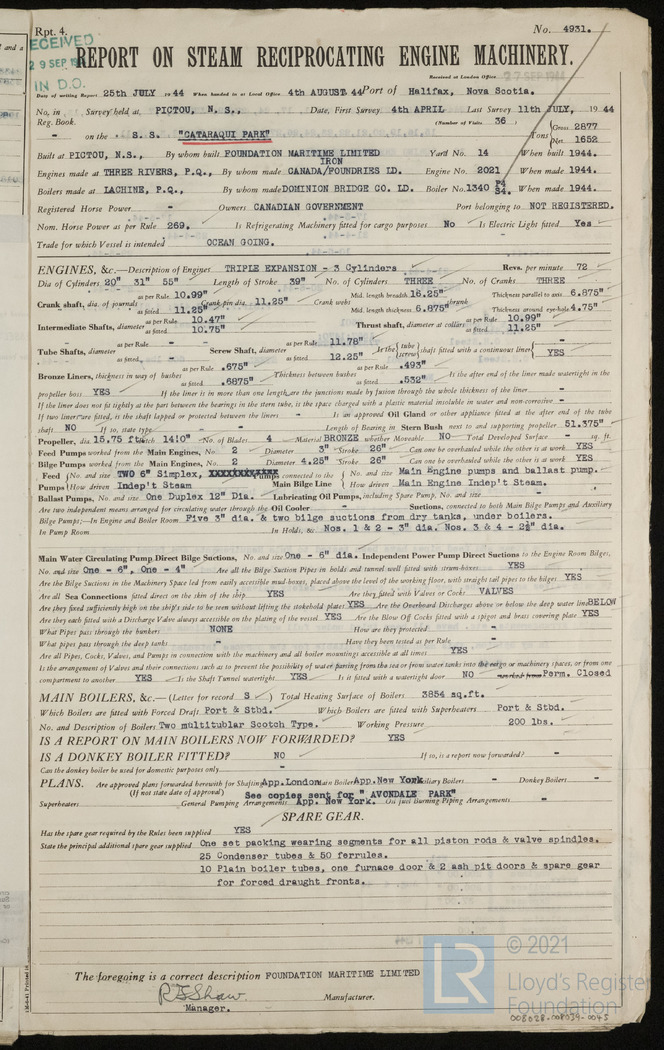 Rpt. 4.
No. 4931.
RECEIVED
29 SEP 19
IN D.O.
REPORT ON STEAM RECIPROCATING ENGINE MACHINERY.
Received at London Office 27 SEP 1944
Date of writing Report 25th JULY 19 44 When handed in at Local Office 4th AUGUST 44 Port of Halifax, Nova Scotia.
No. in Survey held at PICTOU, N. S., Date, First Survey 4th APRIL Last Survey 11th JULY, 19 44
Reg. Book. (Number of Visits 36
- on the S. S. "CATARAQUI PARK" Tons Gross 2877 Net 1652
Built at PICTOU, N.S., By whom built FOUNDATION MARITIME LIMITED Yard No. 14 When built 1944.
Engines made at THREE RIVERS, P.Q., By whom made CANADA/IRON FOUNDRIES LD. Engine No. 2021 When made 1944.
Boilers made at LACHINE, P.Q., By whom made DOMINION BRIDGE CO. LD. Boiler No. 1340 P4 S4. When made 1944.
Registered Horse Power - Owners CANADIAN GOVERNMENT Port belonging to NOT REGISTERED.
Nom. Horse Power as per Rule 269. Is Refrigerating Machinery fitted for cargo purposes No Is Electric Light fitted Yes
Trade for which Vessel is intended OCEAN GOING.
ENGINES, &c.—Description of Engines TRIPLE EXPANSION - 3 Cylinders Revs. per minute 72
Dia of Cylinders 20" 31" 55" Length of Stroke 39" No. of Cylinders THREE No. of Cranks THREE
Crank shaft, dia. of journals as per Rule 10.99" as fitted 11.25" Crank pin dia. 11.25" Crank webs Mid. length breadth 16.25" Mid. length thickness 6.875" shrunk Thickness parallel to axis 6.875" Thickness around eye-hole 4.75"
Intermediate Shafts, diameter as per Rule 10.47" as fitted 10.75" Thrust shaft, diameter at collars as per Rule 10.99" as fitted 11.25"
Tube Shafts, diameter as per Rule - as fitted - Screw Shaft, diameter as per Rule 11.78" as fitted 12.25" Is the tube screw shaft fitted with a continuous liner - YES
Bronze Liners, thickness in way of bushes as per Rule .675" as fitted .6875" Thickness between bushes as per Rule .493" as fitted .532" Is the after end of the liner made watertight in the
propeller boss YES If the liner is in more than one length are the junctions made by fusion through the whole thickness of the liner -
If the liner does not fit tightly at the part between the bearings in the stern tube, is the space charged with a plastic material insoluble in water and non-corrosive -
If two liners are fitted, is the shaft lapped or protected between the liners - Is an approved Oil Gland or other appliance fitted at the after end of the tube
shaft NO If so, state type - Length of Bearing in Stern Bush next to and supporting propeller 51.375"
Propeller, dia 15.75 ft. Pitch 14'0" No. of Blades 4 Material BRONZE whether Moveable NO Total Developed Surface - sq. ft.
Feed Pumps worked from the Main Engines, No. 2 Diameter 3" Stroke 26" Can one be overhauled while the other is at work YES
Bilge Pumps worked from the Main Engines, No. 2 Diameter 4.25" Stroke 26" Can one be overhauled while the other is at work YES
Feed Pumps No. and size TWO 6" Simplex, Pumps connected to the Main Bilge Line No. and size Main Engine pumps and ballast pump.
How driven Indep't Steam How driven Main Engine Indep't Steam.
Ballast Pumps, No. and size One Duplex 12" Dia. Lubricating Oil Pumps, including Spare Pump, No. and size -
Are two independent means arranged for circulating water through the Oil Cooler - Suctions, connected to both Main Bilge Pumps and Auxiliary
Bilge Pumps;—In Engine and Boiler Room Five 3" dia. & two bilge suctions from dry tanks, under boilers.
In Pump Room - In Holds, &c. Nos. 1 & 2 - 3" dia. Nos. 3 & 4 - 2½" dia.
Main Water Circulating Pump Direct Bilge Suctions, No. and size One - 6" dia. Independent Power Pump Direct Suctions to the Engine Room Bilges,
No. and size One - 6", One - 4" Are all the Bilge Suction Pipes in holds and tunnel well fitted with strum-boxes YES
Are the Bilge Suctions in the Machinery Space led from easily accessible mud-boxes, placed above the level of the working floor, with straight tail pipes to the bilges YES
Are all Sea Connections fitted direct on the skin of the ship YES Are they fitted with Valves or Cocks VALVES
Are they fixed sufficiently high on the ship's side to be seen without lifting the stokehold plates YES Are the Overboard Discharges above or below the deep water line BELOW
Are they each fitted with a Discharge Valve always accessible on the plating of the vessel YES Are the Blow Off Cocks fitted with a spigot and brass covering plate YES
What Pipes pass through the bunkers NONE How are they protected -
What pipes pass through the deep tanks - Have they been tested as per Rule -
Are all Pipes, Cocks, Valves, and Pumps in connection with the machinery and all boiler mountings accessible at all times YES
Is the arrangement of Valves and their connections such as to prevent the possibility of water passing from the sea or from water tanks into the cargo or machinery spaces, or from one
compartment to another YES Is the Shaft Tunnel watertight YES Is it fitted with a watertight door NO worked from Perm. Closed
MAIN BOILERS, &c.—(Letter for record S ) Total Heating Surface of Boilers 3854 sq.ft.
Which Boilers are fitted with Forced Draft Port & Stbd. Which Boilers are fitted with Superheaters Port & Stbd.
No. and Description of Boilers Two multitublar Scotch Type. Working Pressure 200 lbs.
IS A REPORT ON MAIN BOILERS NOW FORWARDED? YES
IS A DONKEY BOILER FITTED? NO If so, is a report now forwarded? -
Can the donkey boiler be used for domestic purposes only -
PLANS. Are approved plans forwarded herewith for Shafting App.London Main Boilers App.New York Auxiliary Boilers - Donkey Boilers -
(If not state date of approval) See copies sent for " AVONDALE PARK"
Superheaters General Pumping Arrangements App. New York. Oil fuel Burning Piping Arrangements -
SPARE GEAR.
Has the spare gear required by the Rules been supplied YES
State the principal additional spare gear supplied One set packing wearing segments for all piston rods & valve spindles.
25 Condenser tubes & 50 ferrules.
10 Plain boiler tubes, one furnace door & 2 ash pit doors & spare gear
for forced draught fronts.
The foregoing is a correct description FOUNDATION MARITIME LIMITED
R D Shaw Manufacturer.
Manager.
LR © 2021
Lloyd's Register
Foundation
008028-008039-0045